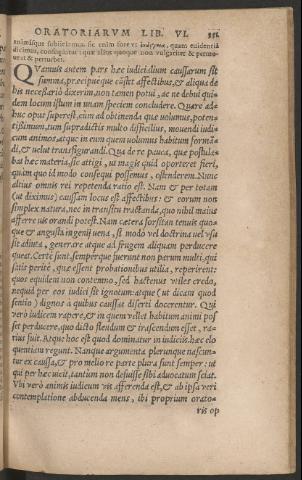 ORATORIARVM LIB. VI. 331.
animisque subijciamus: sic enim fore vt quam euidentia
dicimus, consequatur: quæ alios quoque non vulgariter & permo-
ueat & perturbet.
QVamuis autem pars hæc iudicialium caussarum sit
summa, præcipueque cõstet affectibus, & aliqua de
his necessariò dixerim, non tamen potui, ac ne debui qui-
dem locum istum in vnam speciem concludere. Quare ad-
huc opus superest, cùm ad obtinenda quæ volumus, poten-
tissimum, tum supradictis multo difficilius, mouendi iudi-
cum animos, atque in eum quem volumus habitum formã-
di, & velut transfigurandi. Qua de re pauca, quæ postula-
bat hæc materia, sic attigi, vt magis quid oporteret fieri,
quàm quo id modo consequi possemus, ostenderem. Nunc
altius omnis rei repetenda ratio est. Nam & per totam
(vt diximus) caussam locus est affectibus: & eorum non
simplex natura, nec in transitu tractanda, quo nihil maius
afferre vis orandi potest. Nam cætera forsitan tenuis quo-
que & angusta ingenij vena, si modo vel doctrina vel vsu
sit adiuta, generare atque ad frugem aliquam perducere
queat. Certè sunt, semperque fuerunt non parum multi, qui
satis peritè, quæ essent probationibus vtilia, reperirent:
quos equidem non contemno, sed hactenus vtiles credo,
nequid per eos iudici sit ignotum: atque (vt dicam quod
sentio) dignos à quibus caussas diserti docerentur. Qui
verò iudicem rapere, & in quem vellet habitum animi pos-
set perducere, quo dicto flendum & irascendum esset, ra-
rius fuit. Atqui hoc est quod dominatur in iudicijs, hæc elo
quentiam regunt. Nanque argumenta plerunque nascun-
tur ex caussa, & pro meliore parte plura sunt semper: vt
qui per hæc vicit, tantùm non defuisse sibi aduocatum sciat.
Vbi verò animis iudicum vis afferenda est, & ab ipsa veri
contemplatione abducenda mens, ibi proprium orato-
ris op